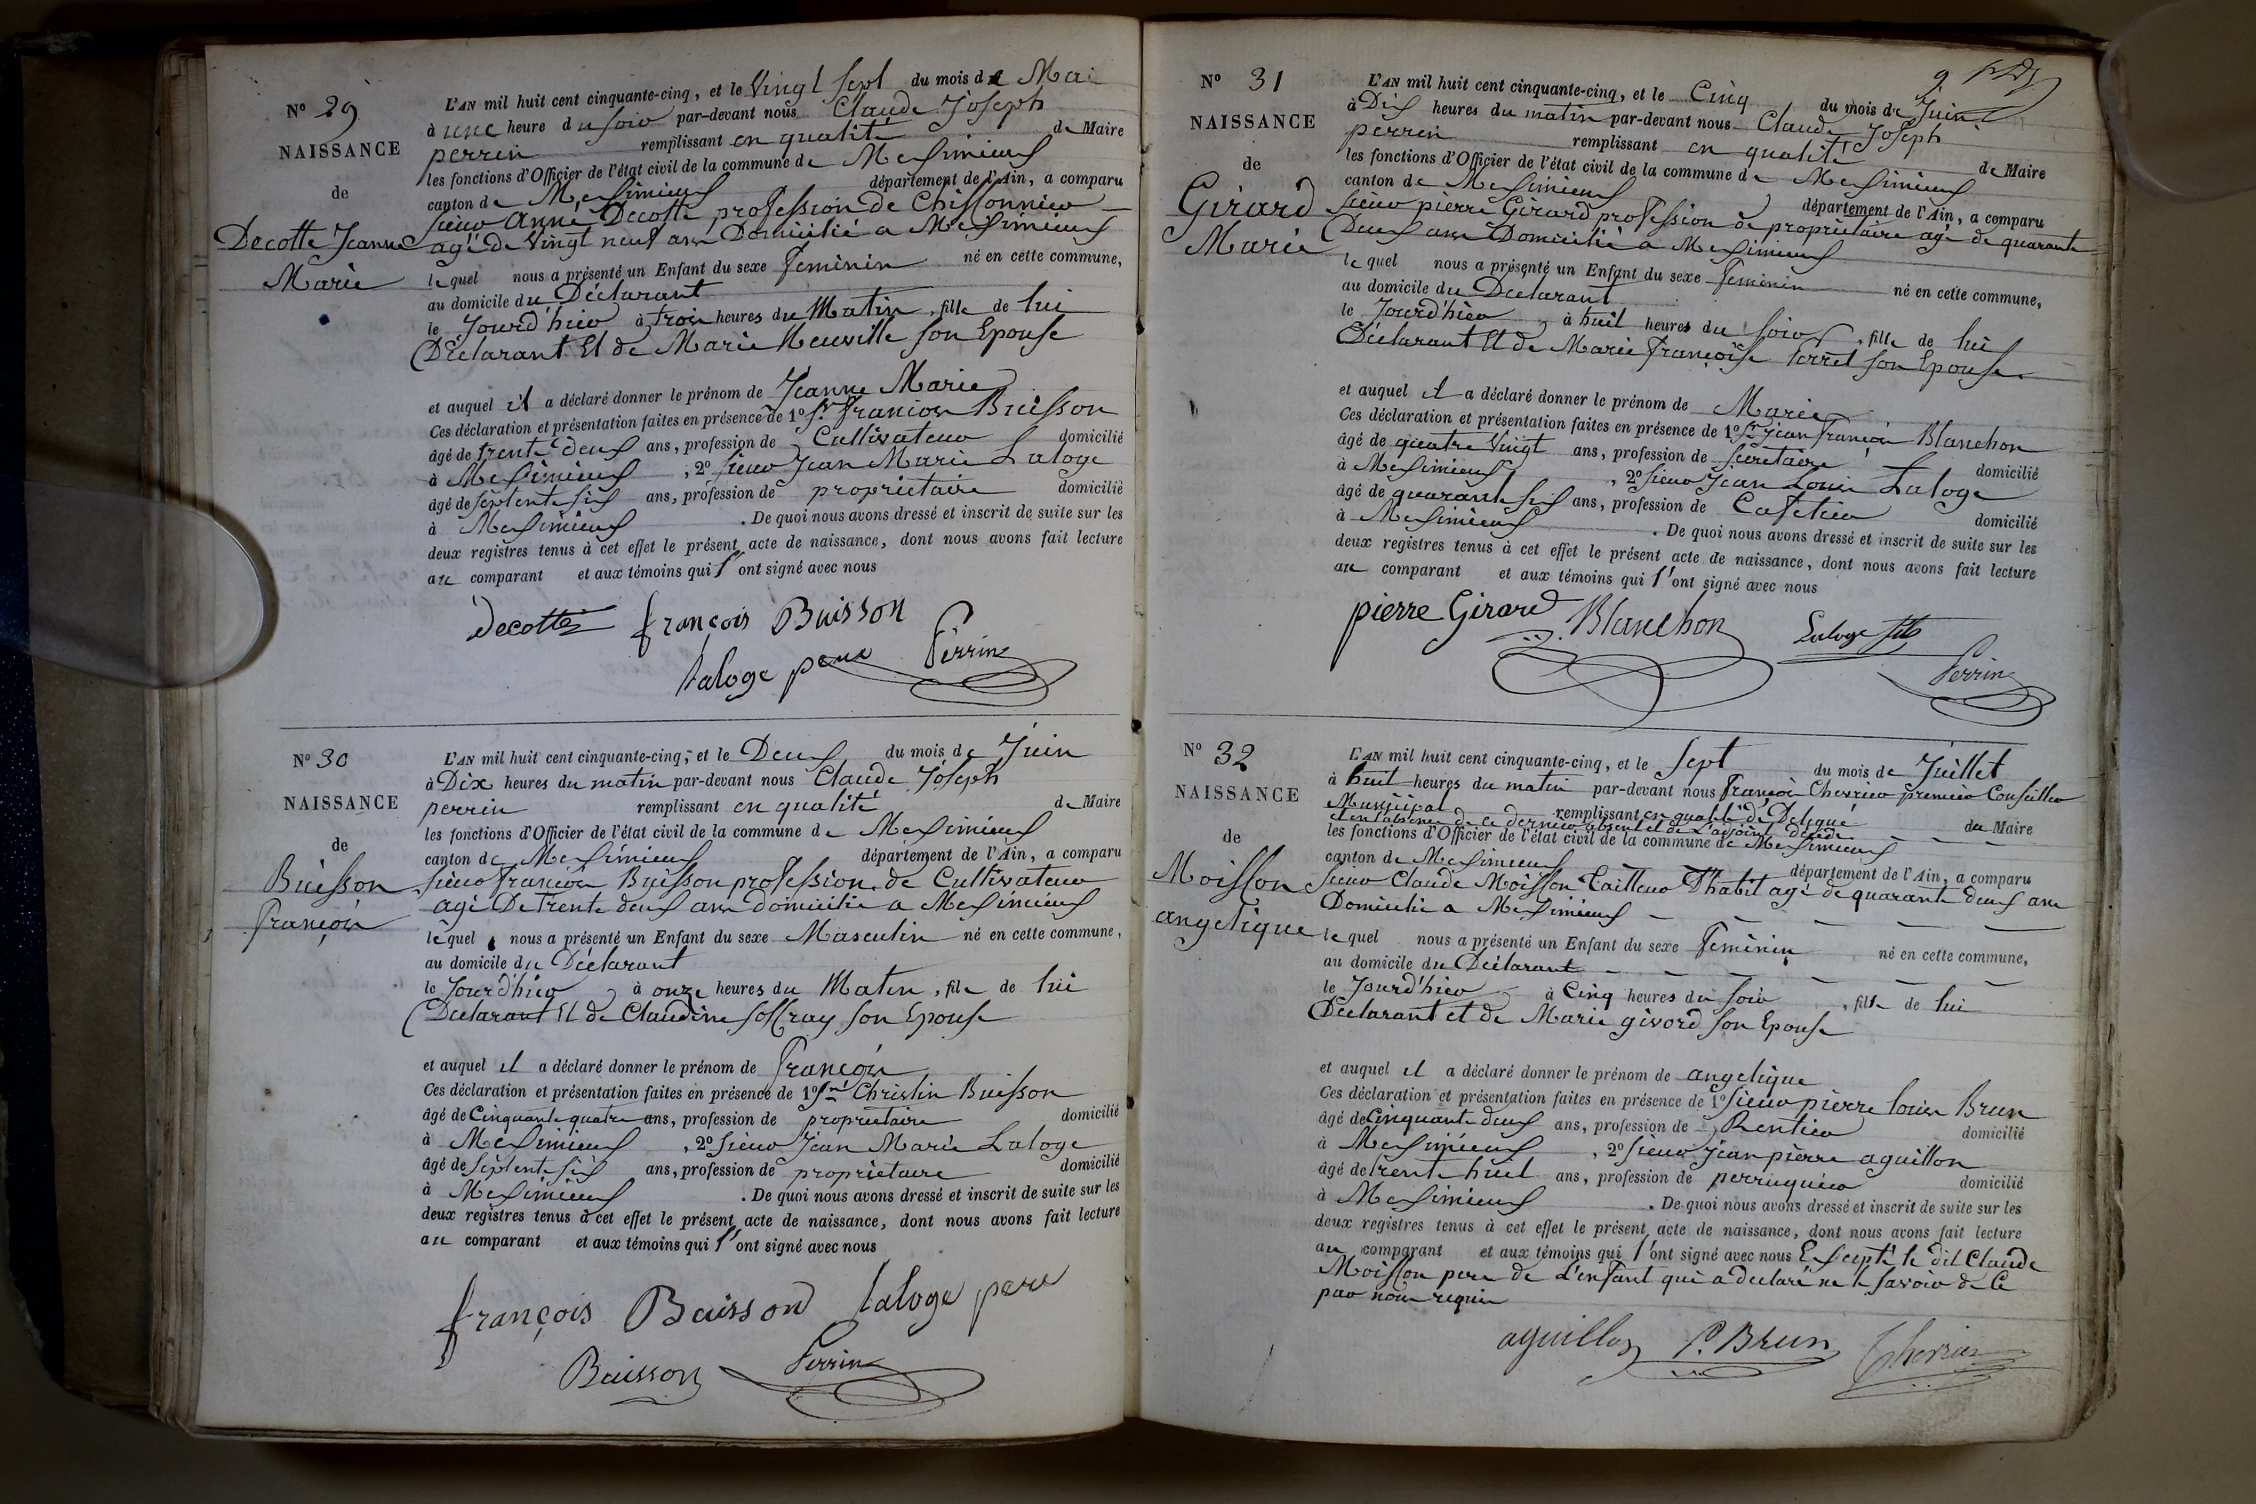 N° 29
NAISSANCE
de
Decotte Jeanne
Marie
L'AN mil huit cent cinquante-cinq, et le Vingt Sept du mois de Mai
à une heure du soir par-devant nous Claude Joseph
perrin remplissant en qualité de Maire
les fonctions d'Officier de l'état civil de la commune de Meximieux
canton de Meximieux département de l'Ain, a comparu
sieur Anne Decotte profession de Chiffonnier
agé de Vingt neuf ans Domicilié a Meximieux
lequel nous a présenté un Enfant du sexe feminin né en cette commune,
au domicile du Déclarant
le Jourd'hier à trois heures du Matin, fille de lui
Déclarant Et de Marie Neuville son Epouse
et auquel il a déclaré donner le prénom de Jeanne Marie
Ces déclaration et présentation faites en présence de 1° Sr françois Buisson
âgé de trente deux ans, profession de Cultivateur domicilié
à Meximieux, 2° sieur Jean Marie Laloge
âgé de septente six ans, profession de proprietaire domicilié
à Meximieux. De quoi nous avons dressé et inscrit de suite sur les
deux registres tenus à cet effet le présent acte de naissance, dont nous avons fait lecture
au comparant et aux témoins qui l'ont signé avec nous
Decotte françois Buisson
laloge pere Perrin
N° 30
NAISSANCE
de
Buisson
françois
L'AN mil huit cent cinquante-cinq, et le Deux du mois de Juin
à Dix heures du matin par-devant nous Claude Joseph
perrin remplissant en qualité de Maire
les fonctions d'Officier de l'état civil de la commune de Meximieux
canton de Meximieux département de l'Ain, a comparu
sieur françois Buisson profession de Cultivateur
agé De trente deux ans domicilié a Meximieux
lequel nous a présenté un Enfant du sexe Masculin né en cette commune,
au domicile du Déclarant
le Jourd'hier à onze heures du Matin, fils de lui
Déclarant Et de Claudine soffray son Epouse
et auquel il a déclaré donner le prénom de françois
Ces déclaration et présentation faites en présence de 1° Christin Buisson
âgé de Cinquante quatre ans, profession de proprietaire domicilié
à Meximieux, 2° sieur Jean Marie Laloge
âgé de Septente six ans, profession de proprietaire domicilié
à Meximieux. De quoi nous avons dressé et inscrit de suite sur les
deux registres tenus à cet effet le présent acte de naissance, dont nous avons fait lecture
au comparant et aux témoins qui l'ont signé avec nous
françois Buisson laloge pere
Buisson Perrin
9
N° 31
NAISSANCE
de
Girard
Marie
L'AN mil huit cent cinquante-cinq, et le Cinq du mois de Juin
à Dix heures du matin par-devant nous Claude Joseph
perrin remplissant en qualité de Maire
les fonctions d'Officier de l'état civil de la commune de Meximieux
canton de Meximieux département de l'Ain, a comparu
sieur pierre Girard profession de proprietaire agé de quarante
Deux ans Domicilié a Meximieux
lequel nous a présenté un Enfant du sexe feminin né en cette commune,
au domicile du Declarant
le Jourd'hier à huit heures du soir, fille de lui
Déclarant Et de Marie françoise terrel son Epouse
et auquel il a déclaré donner le prénom de Marie
Ces déclaration et présentation faites en présence de 1° Sr jean françois Blanchon
âgé de quatre Vingt ans, profession de secretaire domicilié
à Meximieux, 2° sieur Jean Louis Laloge
âgé de quarante six ans, profession de Cafetier domicilié
à Meximieux. De quoi nous avons dressé et inscrit de suite sur les
deux registres tenus à cet effet le présent acte de naissance, dont nous avons fait lecture
au comparant et aux témoins qui l'ont signé avec nous
pierre Girard Blanchon Laloge fils
Perrin
N° 32
NAISSANCE
de
Moisson
angelique
L'AN mil huit cent cinquante-cinq, et le Sept du mois de Juillet
à huit heures du matin par-devant nous françois Cherrier premier Conseiller
Municipal remplissant en qualité de Delegué du Maire
et en absence de ce dernier absent et de l'adjoint décédé
les fonctions d'Officier de l'état civil de la commune de Meximieux
canton de Meximieux département de l'Ain, a comparu
sieur Claude Moisson Tailleur D'habit agé de quarante deux ans
Domicilié a Meximieux
lequel nous a présenté un Enfant du sexe feminin né en cette commune,
au domicile du Déclarant
le Jourd'hier à Cinq heures du soir, fille de lui
Déclarant et de Marie givord son Epouse
et auquel il a déclaré donner le prénom de angelique
Ces déclaration et présentation faites en présence de 1° sieur pierre louis Brun
âgé de Cinquante deux ans, profession de Rentier domicilié
à Meximieux, 2° sieur jean pierre aguillon
âgé de trente huit ans, profession de perruquier domicilié
à Meximieux. De quoi nous avons dressé et inscrit de suite sur les
deux registres tenus à cet effet le présent acte de naissance, dont nous avons fait lecture
au comparant et aux témoins qui l'ont signé avec nous Excepté le dit Claude
Moisson pere de L'enfant qui a declaré ne le savoir de Ce
par nous requis
aguillon P. Brun Cherrier